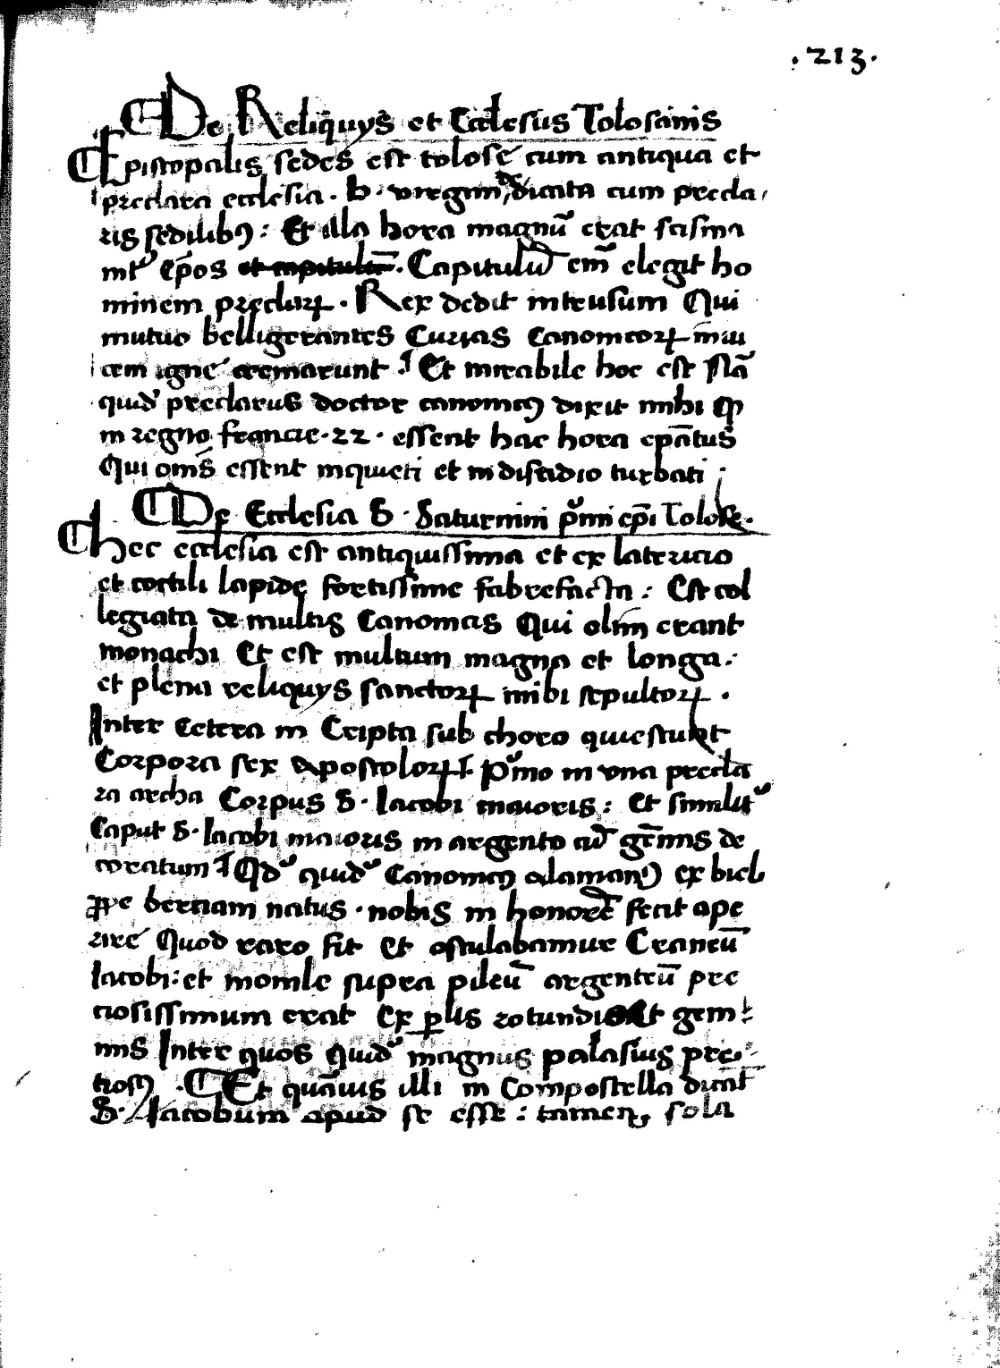 .213.
De Reliquys et Ecclesiis Tolosanis
Episcopalis sedes est tolose cum antiqua et
preclara ecclesia . b . virgini dicata cum precla
ris sedilibꝫ : Et illa hora magnū erat scisma
int᷑ ep̄os et capitulū . Capitulū em̄ elegit ho
minem preclarꝝ . Rex dedit intrusum Qui
mutuo belligerantes Curias Canonicorꝝ inui
cem igne cremarunt : Et mirabile hoc est Nā
quid preclarus doctor canonicꝰ dixit mihi qꝫ
in regno francie . 22 . essent hac hora epātus
Qui om̄s essent inquieti et in discidio turbati :
De Ecclesia S . Saturnini p̄mi ep̄i Tolose .
hec ecclesia est antiquissima et ex latericio
et coctili lapide fortissime fabrefacta : Est col
legiata de multis Canonicis Qui olim erant
monachi Et est multum magna et longa .
et plena reliquys sanctorꝝ inibi sepultorꝝ .
Inter Cetera in Cripta sub choro quiescunt
Corpora sex apostolorꝝ . P̄mo in vna precla
ra archa Corpus S . Iacobi maioris : Et similit᷑
Caput S . Iacobi maioris in argento cū gēmis de
coratum Qd̄ quid̄ Canonicꝰ alamanꝰ ex bicl
natus . nobis in honorē fecit ape
rire Quod raro fit Et osculabamur Craneū
Iacobi : et monile supra pileū argenteū pre
ciosissimum erat Ex p̱lis rotundis Et gem
mis Inter quos quid̄ magnus palasius pre
ciosꝰ . Et quāuis illi in Compostella dicāt
S . Iacobum apud se esse : tamen, sola